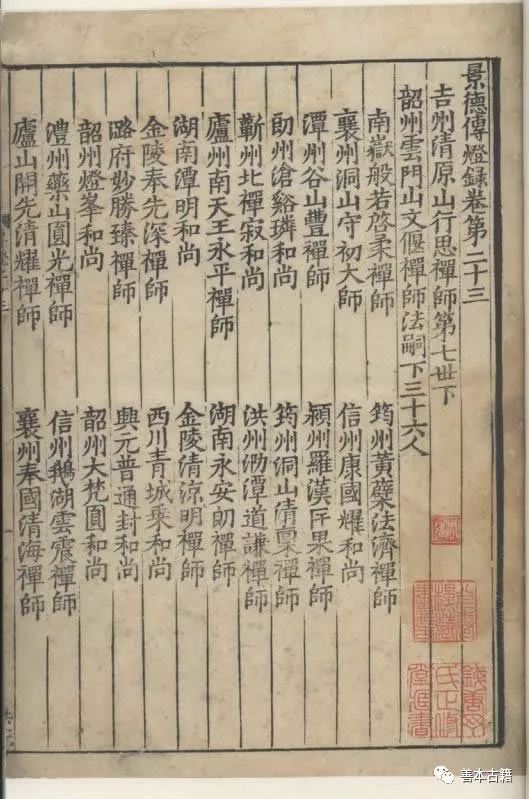 景德傳燈錄卷第二十三
吉州清原山行思禪師第七世下
韶州雲門山文偃禪師法嗣下三十六人
南嶽般若啓柔禪師 筠州黃蘗法濟禪師
襄州洞山守初大師 信州康國耀和尚
潭州谷山豐禪師 潁州羅漢匡果禪師
朗州滄谿璘和尚 筠州洞山清稟禪師
蘄州北禪寂和尚 洪州泐潭道謙禪師
廬州南天王永平禪師 湖南永安朗禪師
湖南潭明和尚 金陵清涼明禪師
金陵奉先深禪師 西川青城乘和尚
潞府妙勝臻禪師 興元普通封和尚
韶州燈峯和尚 韶州大梵圓和尚
澧州藥山圓光禪師 信州鵝湖雲震禪師
廬山開先清耀禪師 襄州奉國清海禪師
錢唐丁氏正修堂藏書
善本古籍